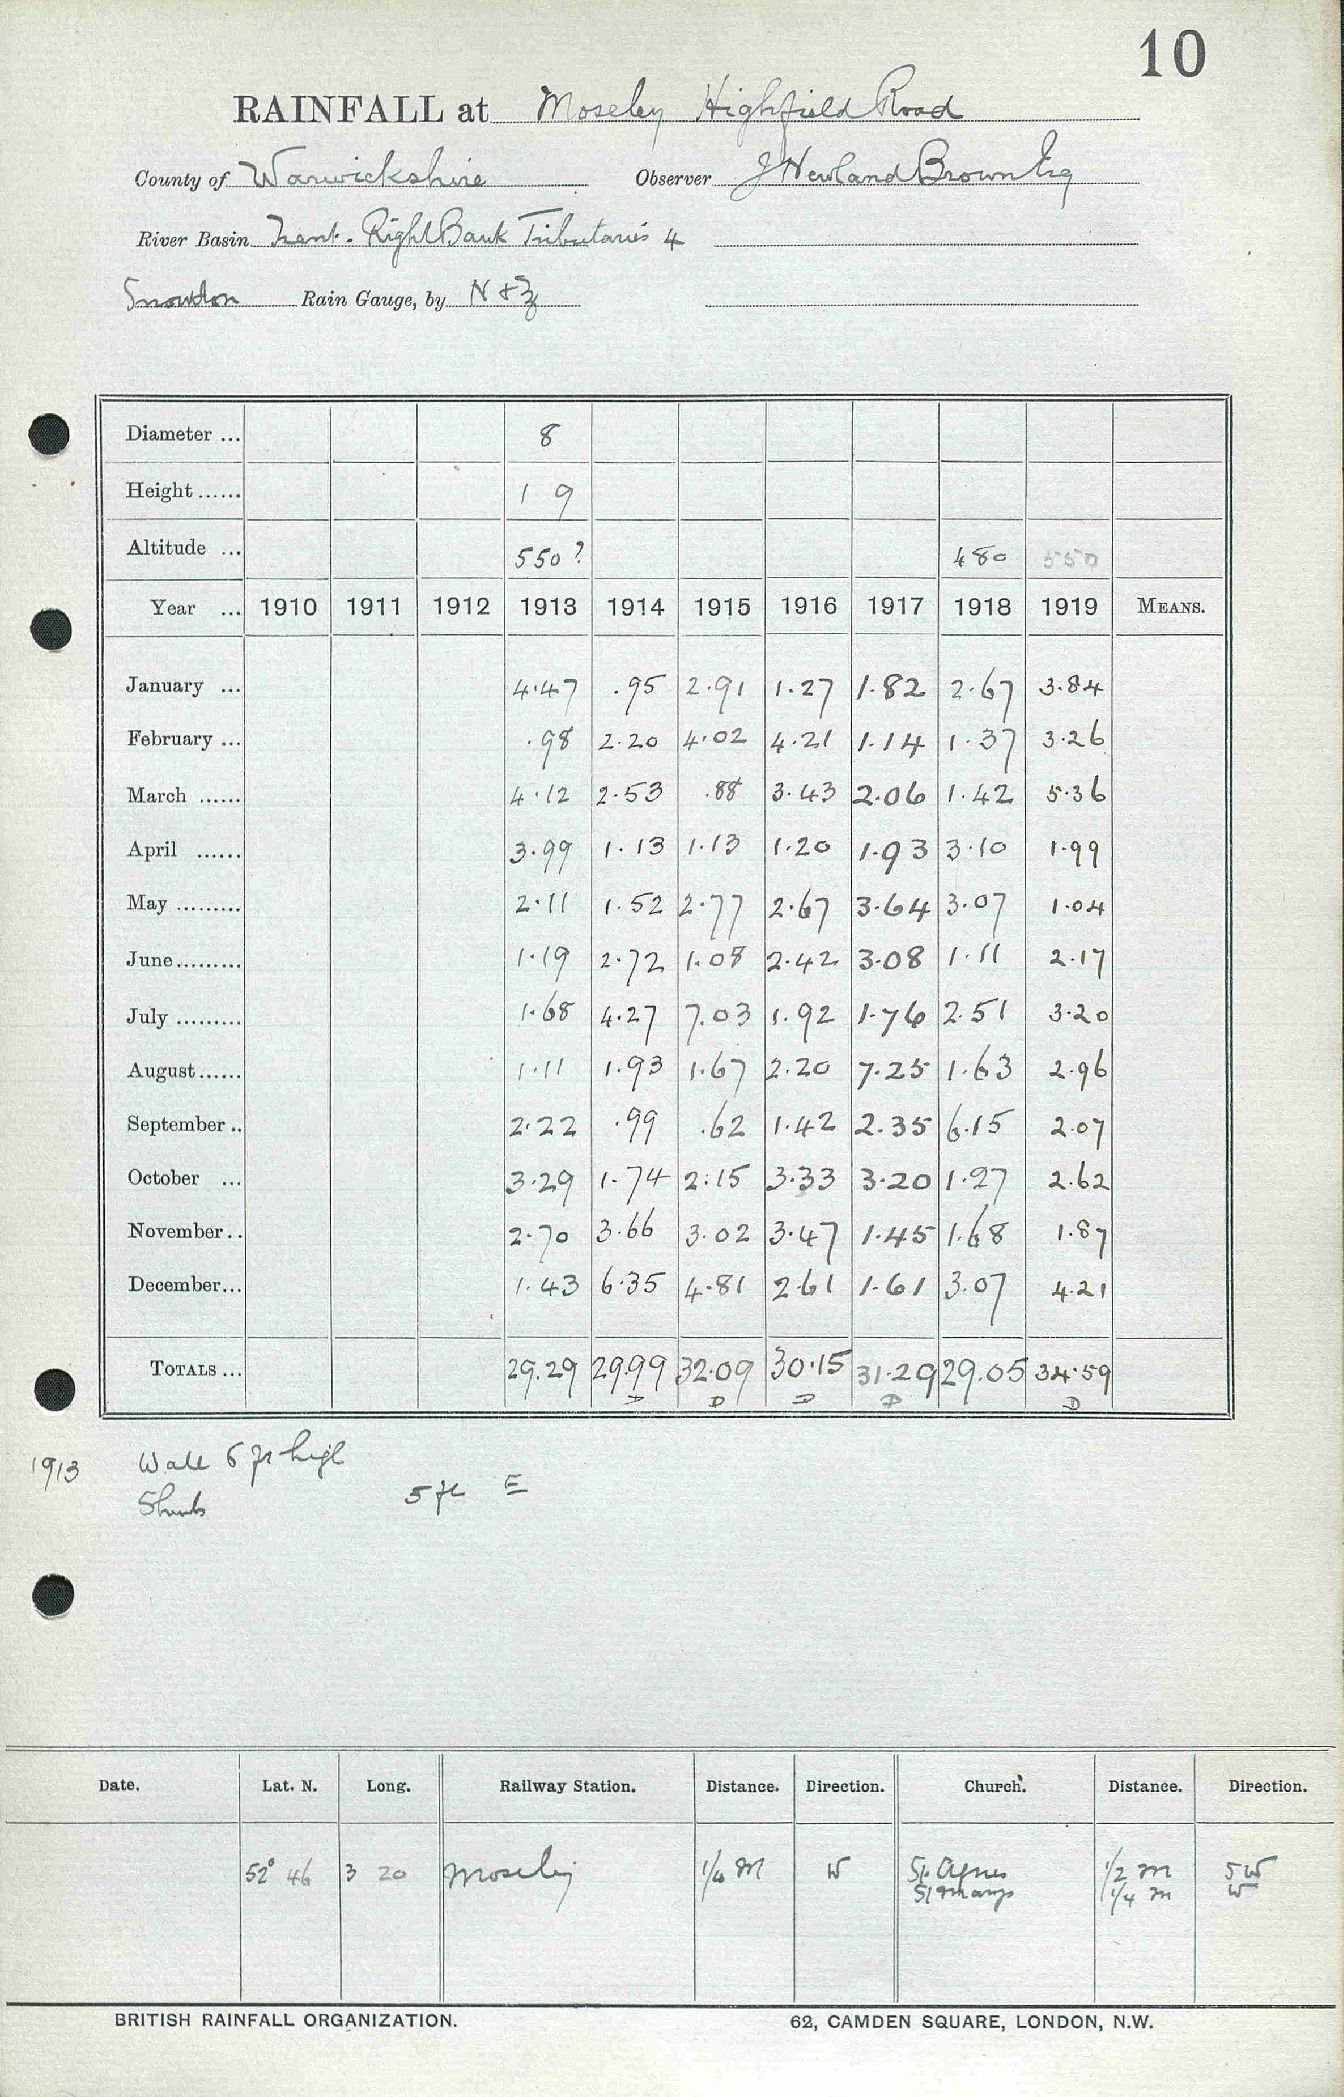 10
RAINFALL at Moseley Highfield Road
County of Warwickshire Observer J Newland Brown Esq
River Basin Trent. Right Bank Tributaries 4
Snowdon Rain Gauge, by N & Z
Diameter ... 8
Height...... 1 9
Altitude ... 550? 480 550
Year ... 1910 1911 1912 1913 1914 1915 1916 1917 1918 1919 MEANS.
January ... 4.47 .95 2.91 1.27 1.82 2.67 3.84
February ... .98 2.20 4.02 4.21 1.14 1.37 3.26
March ...... 4.12 2.53 .88 3.43 2.06 1.42 5.36
April ...... 3.99 1.13 1.13 1.20 1.93 3.10 1.99
May ......... 2.11 1.52 2.77 2.67 3.64 3.07 1.04
June......... 1.19 2.72 1.08 2.42 3.08 1.11 2.17
July ......... 1.68 4.27 7.03 1.92 1.76 2.51 3.20
August...... 1.11 1.93 1.67 2.20 7.25 1.63 2.96
September .. 2.22 .99 .62 1.42 2.35 6.15 2.07
October ... 3.29 1.74 2.15 3.33 3.20 1.27 2.62
November.. 2.70 3.66 3.02 3.47 1.45 1.68 1.87
December... 1.43 6.35 4.81 2.61 1.61 3.07 4.21
TOTALS ... 29.29 29.99 32.09 30.15 31.29 29.05 34.59
D D D D D
1913 Wall 6 ft high
Shrubs 5 ft E
Date. Lat. N. Long. Railway Station. Distance. Direction. Church. Distance. Direction.
52° 46 3 20 Moseley 1/4 M W St. Agnes 1/2 m SW
St Marys 1/4 m W
BRITISH RAINFALL ORGANIZATION. 62, CAMDEN SQUARE, LONDON, N.W.